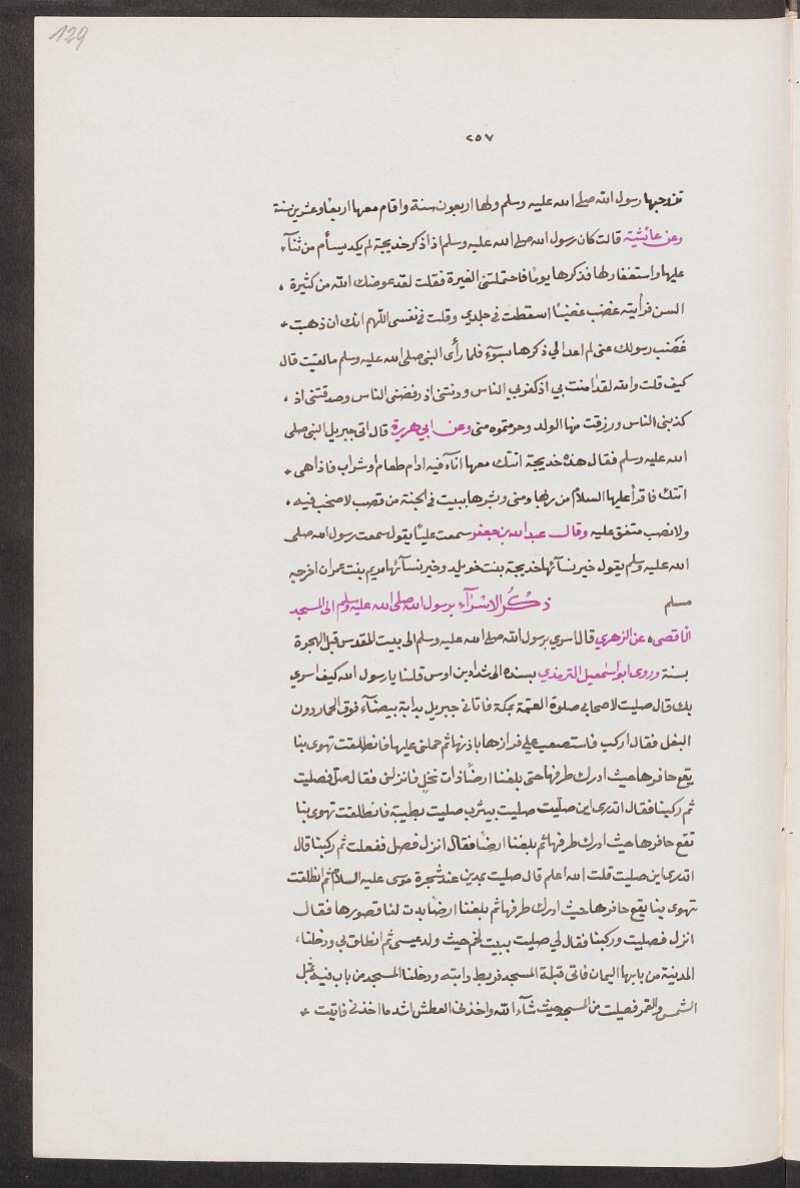 129
٢٥٧
تزوجها رسول الله صلى الله عليه وسلم ولها اربعون سنة واقام معها اربعا وعشرين سنة
وعن عائشة قالت كان رسول الله صلى الله عليه وسلم اذا ذكر خديجة لم يكد يسأم من ثنآء
عليها واستغفار لها فذكرها يومًا فاحتملتنى الغيرة فقلت لقد عوضك الله من كثيرة
السن فرأيته غضب غضبًا اسقطت فى جلدي وقلت فى نفسى اللهم انك ان ذهبت
غضب رسولك عنى لم اعد الي ذكرها بسوٓء فلما رأى النبى صلى الله عليه وسلم ما لقيت قال
كيف قلت والله لقد امنت بي اذ كفر بي الناس وونتنى اذ رفضنى الناس وصدقتنى اذ
كذبنى الناس ورزقت منها الولد وحرمتموه منى وعن ابي هريرة قال اتى جبريل النبى صلى
الله عليه وسلم فقال هذه خديجة اتتك معها انآء فيه ادام طعام او شراب فاذا هى
اتتك فاقرأ عليها السلام من ربها ومنى وبشرها ببيت فى الجنة من قصب لا صخب فيه
ولا نصب متفق عليه وقال عبد الله بن جعفر سمعت عليًا يقول سمعت رسول الله صلى
الله عليه وسلم يقول خير نسآئها خديجة بنت خويلد وخير نسآئها مريم بنت عمران اخرجه
مسلم ذكر الاسرآء برسول الله صلى الله عليه وسلم الى المسجد
الاقصى عن الزهري قال اسري برسول الله صلى الله عليه وسلم الى بيت المقدس قبل الهجرة
بسنة وروى ابو اسمعيل الترمذي بسنده الى شداد بن اوس قلنا يا رسول الله كيف اسري
بك قال صليت لاصحابي صلوة العتمة بمكة فاتانى جبريل بدابة بيضآء فوق الحمار دون
البغل فقال اركب فاستصعب علي فرازها باذنها ثم حملنى عليها فانطلقت تهوى بنا
يقع حافرها حيث ادرك طرفها حتى بلغنا ارضًا ذات نخل فانزلنى فقال صل فصليت
ثم ركبنا فقال اتدرى اين صليت صليت بيثرب صليت بطيبة فانطلقت تهوى بنا
تقع حافرها حيث ادرك طرفها ثم بلغنا ارضًا فقال انزل فصل ففعلت ثم ركبنا قال
اتدرى اين صليت قلت الله اعلم قال صليت بمدين عند شجرة موسى عليه السلام ثم انطلقت
تهوى بنا يقع حافرها حيث ادرك طرفها ثم بلغنا ارضًا بدت لنا قصورها فقال
انزل فصليت وركبنا فقال لي صليت ببيت لحم حيث ولد عيسى ثم انطلق بي ودخلنا
المدينة من بابها اليمان فاتى قبلة المسجد فربط دابته ودخلنا المسجد من باب فيه تميل
الشمس والقمر فصليت من المسجد حيث شآء الله واخذنى العطش اشد ما اخذنى فاتيت